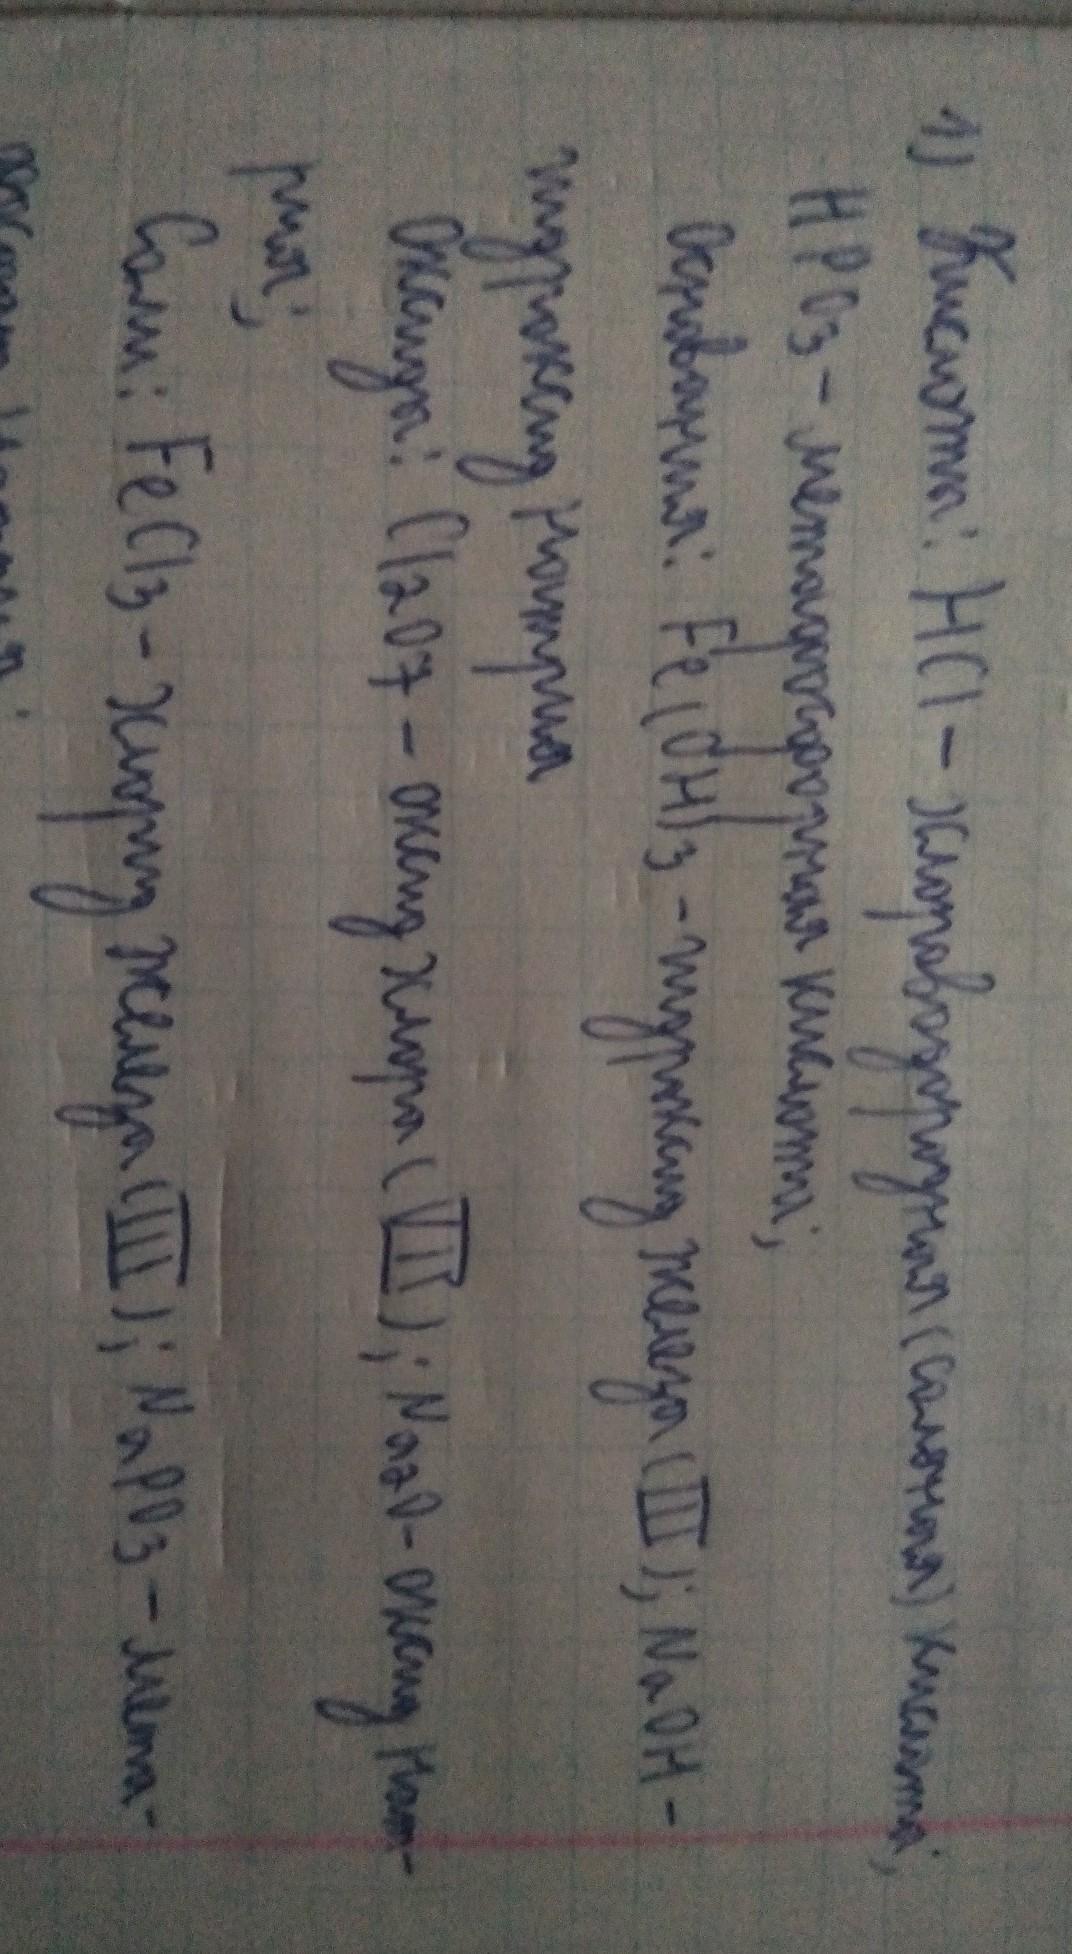 1) Кислоты: HCl - хлороводородная (соляная) кислота;
HPO3 - метафосфорная кислота;
Основания: Fe(OH)3 - гидроксид железа (III); NaOH -
гидроксид натрия
Оксиды: Cl2O7 - оксид хлора (VII); Na2O - оксид нат-
рия;
Соли: FeCl3 - хлорид железа (III); NaPO3 - мета-